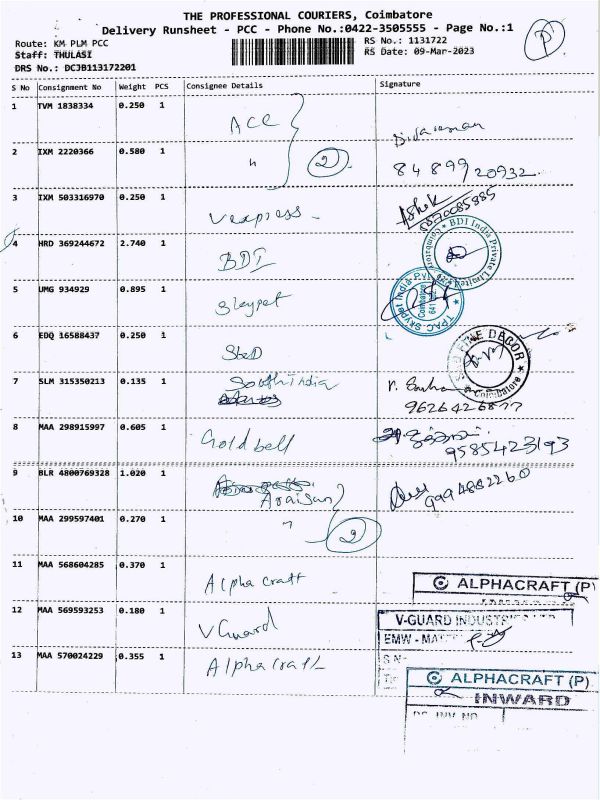 THE PROFESSIONAL COURIERS, Coimbatore
Delivery Runsheet - PCC - Phone No.:0422-3505555 - Page No.:1
Route: KM PLM PCC
RS No.: 1131722
Staff: THULASI
RS Date: 09-Mar-2023
DRS No.: DCJB113172201
P
S No Consignment No Weight PCS Consignee Details Signature
1 TVM 1838334 0.250 1 ACE
2 IXM 2220366 0.580 1 " 2 84899/20932
3 IXM 503316970 0.250 1 Vexpress Ashok
4 HRD 369244672 2.740 1 BDI
BDI India Private Limited
Coimbatore
5 UMG 934929 0.895 1 Skypet
TPAC Skypet India Pvt
Coimbatore
6 EDQ 16588437 0.250 1 S&D
S&D FINE DECOR
Coimbatore
7 SLM 315350213 0.135 1 South India
9626426877
8 MAA 298915997 0.605 1 Goldbell 9585423193
9 BLR 4800769328 1.020 1 Araisan 9994882260
10 MAA 299597401 0.270 1 " 2
11 MAA 568604285 0.370 1 Alpha craft
ALPHACRAFT (P)
12 MAA 569593253 0.180 1 V Guard
V-GUARD INDUSTRIES LTD
EMW -
S N
13 MAA 570024229 0.355 1 Alpha craft
ALPHACRAFT (P)
INWARD